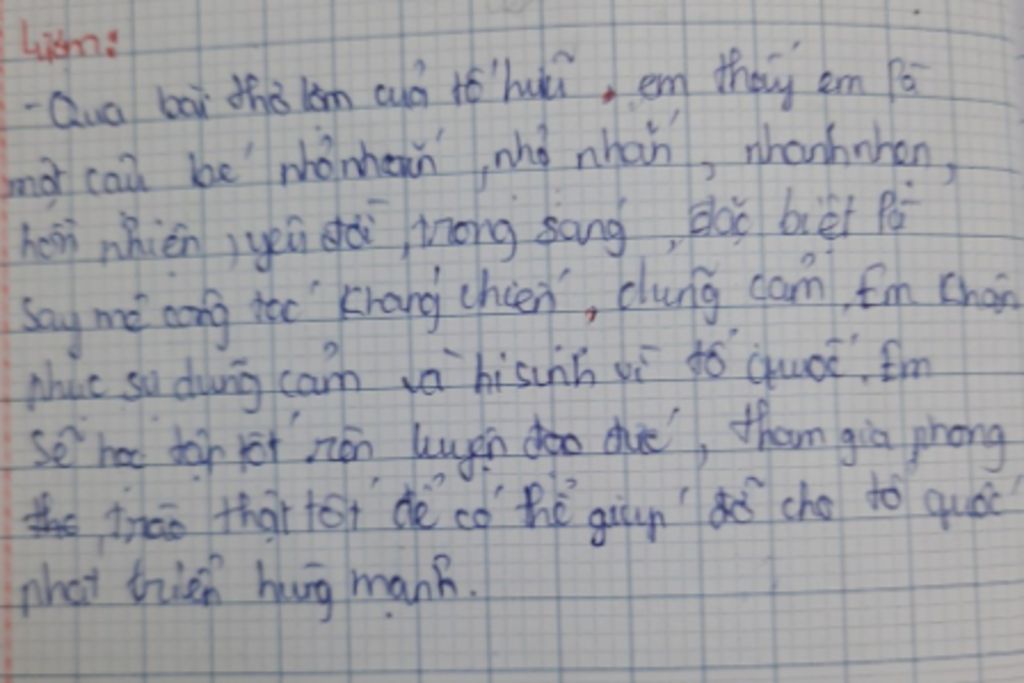 Lượm:
- Qua bài thơ lơm của tố hữu, em thấy em là
một cậu bé nhỏ nhoắn, nhỏ nhắn, nhanh nhẹn,
hồn nhiên, yêu đời, trong sáng, đặc biệt là
say mê công tác kháng chiến, dũng cảm. Em khân
phục sự dũng cảm và hi sinh vì tổ quốc. Em
sẽ học tập tốt rèn luyện đạo đức, tham gia phong
trào thật tốt để có thể giúp đỡ cho tổ quốc
phát triển hùng mạnh.